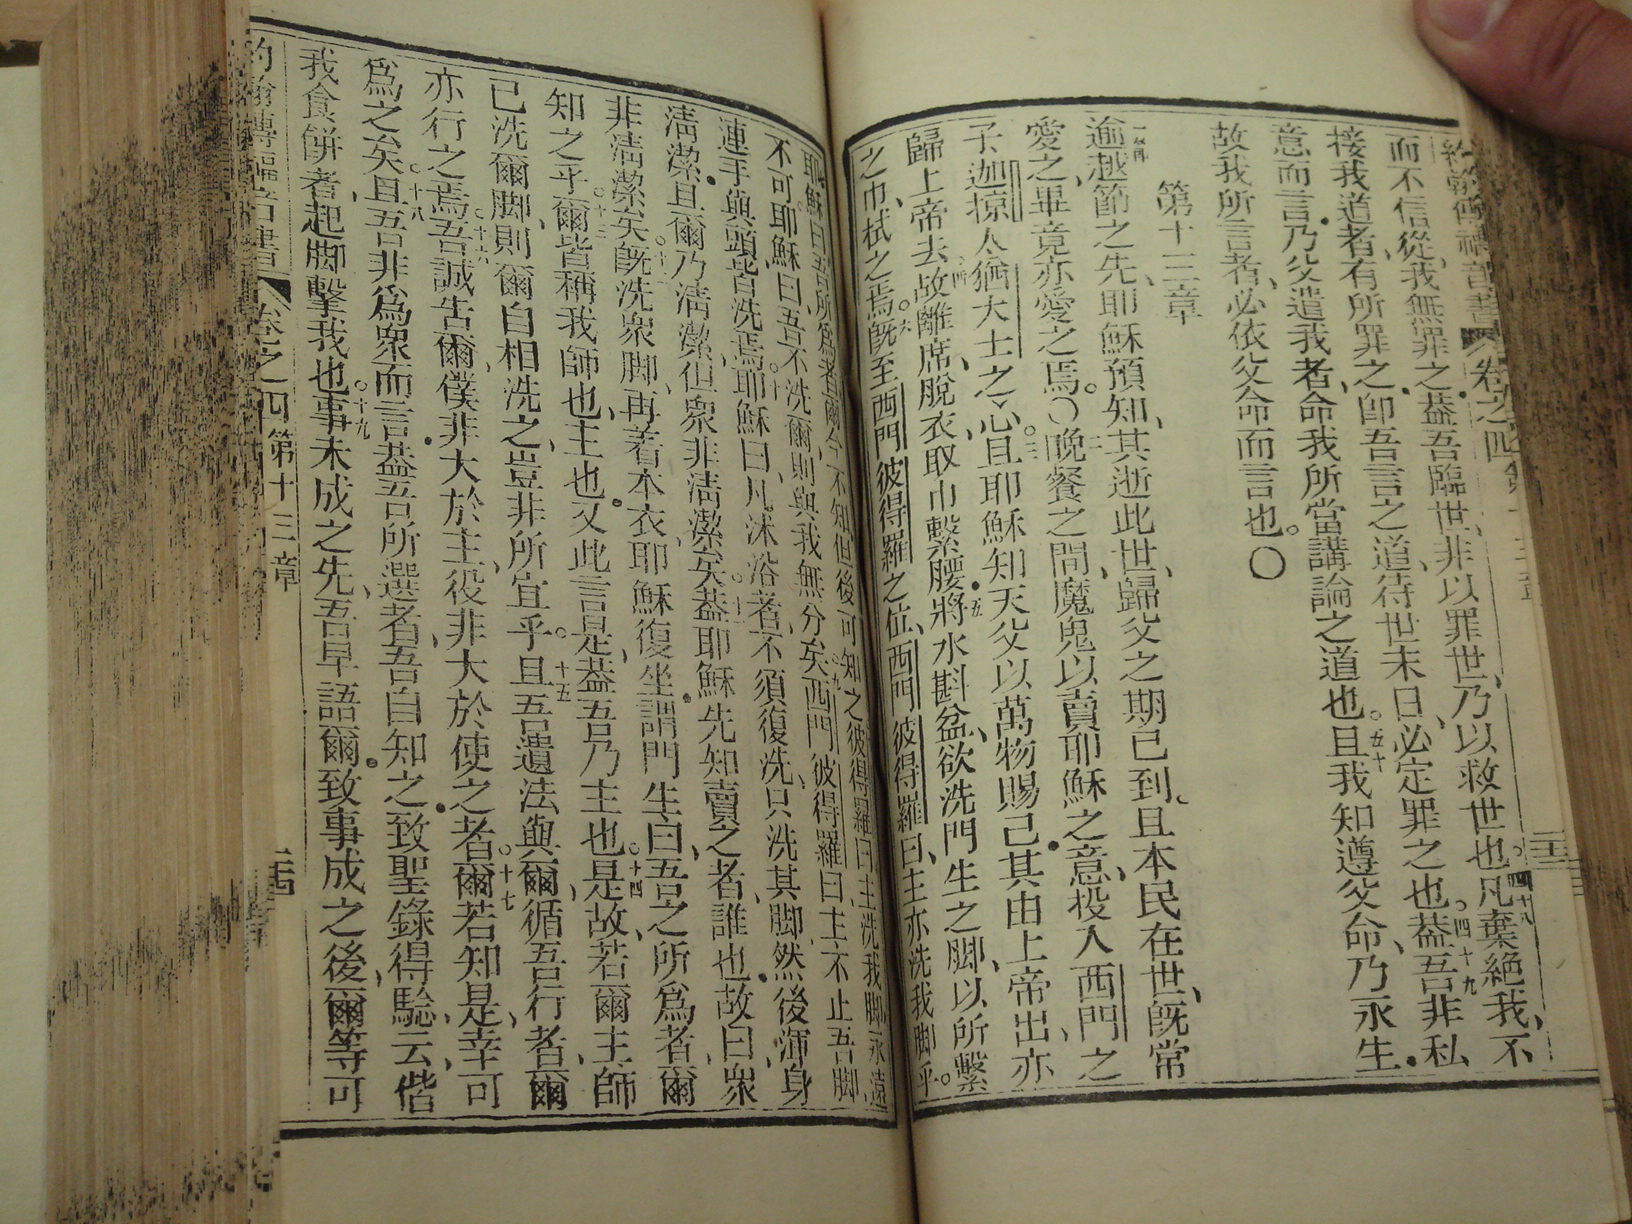 而不信從我無罪之蓋吾臨世非以罪世乃以救世也四十八凡棄絕我不
接我道者有所罪之卽吾言之道待世末日必定罪之也四十九蓋吾非私
意而言乃父遣我者命我所當講論之道也五十且我知遵父命乃永生
故我所言者必依父命而言也〇
第十三章
一節逾越節之先耶穌預知其逝此世歸父之期已到且本民在世旣常
愛之畢竟亦愛之焉〇二晚餐之間魔鬼以賣耶穌之意投入西門之
子加掠人猶大士之心三且耶穌知天父以萬物賜己其由上帝出亦
歸上帝去四故離席脫衣取巾繫腰五將水斟盆欲洗門生之脚以所繫
之巾拭之焉六旣至西門彼得羅之位西門彼得羅曰主亦洗我脚乎
耶穌曰吾所爲者爾今不知但後可知之彼得羅曰主洗我脚永遠
不可耶穌曰吾不洗爾則與我無分矣九西門彼得羅曰主不止吾脚
連手與頭皆洗焉十耶穌曰凡沐浴者不須復洗只洗其脚然後渾身
淸潔且爾乃淸潔但衆非淸潔矣十一蓋耶穌先知賣之者誰也故曰衆
非淸潔矣十二旣洗衆脚再着本衣耶穌復坐謂門生曰吾之所爲者爾
知之乎十三爾皆稱我師也主也又此言是蓋吾乃主也十四是故若爾主師
已洗爾脚則爾自相洗之豈非所宜乎十五且吾遺法與爾循吾行者爾
亦行之焉十六吾誠告爾僕非大於主役非大於使之者十七爾若知是幸可
爲之矣十八且吾非爲衆而言蓋吾所選者吾自知之致聖錄得驗云偕
我食餅者起脚擊我也十九事未成之先吾早語爾致事成之後爾等可
卷之四第十三章